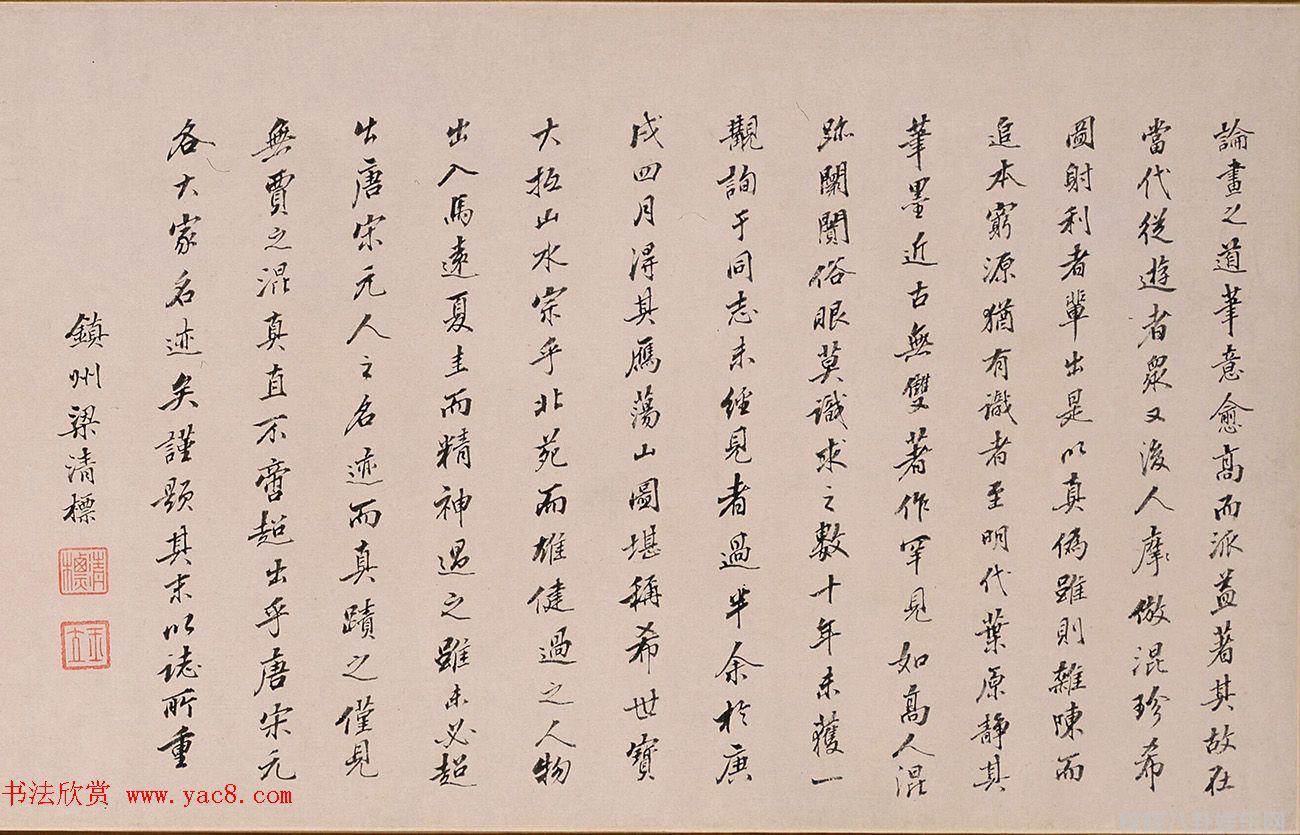 論畫之道筆意愈高而派益著其故在
當代從遊者眾又後人摩倣混珍希
圖射利者輩出是以真偽雖則雜陳而
追本窮源猶有識者至明代葉原靜其
筆墨近古無雙著作罕見如高人混
跡闤闠俗眼莫識求之數十年未獲一
觀詢于同志未經見者過半余於庚
戌四月得其鴈蕩山圖堪稱希世寶
大抵山水宗乎北苑而雄健過之人物
出入馬遠夏圭而精神過之雖未必超
出唐宋元人之名迹而真蹟之僅見
無賈之混真直不啻超出乎唐宋元
各大家名迹矣謹題其末以誌所重
鎮州梁清標
清標
玉立
书法欣赏 www.yac8.com